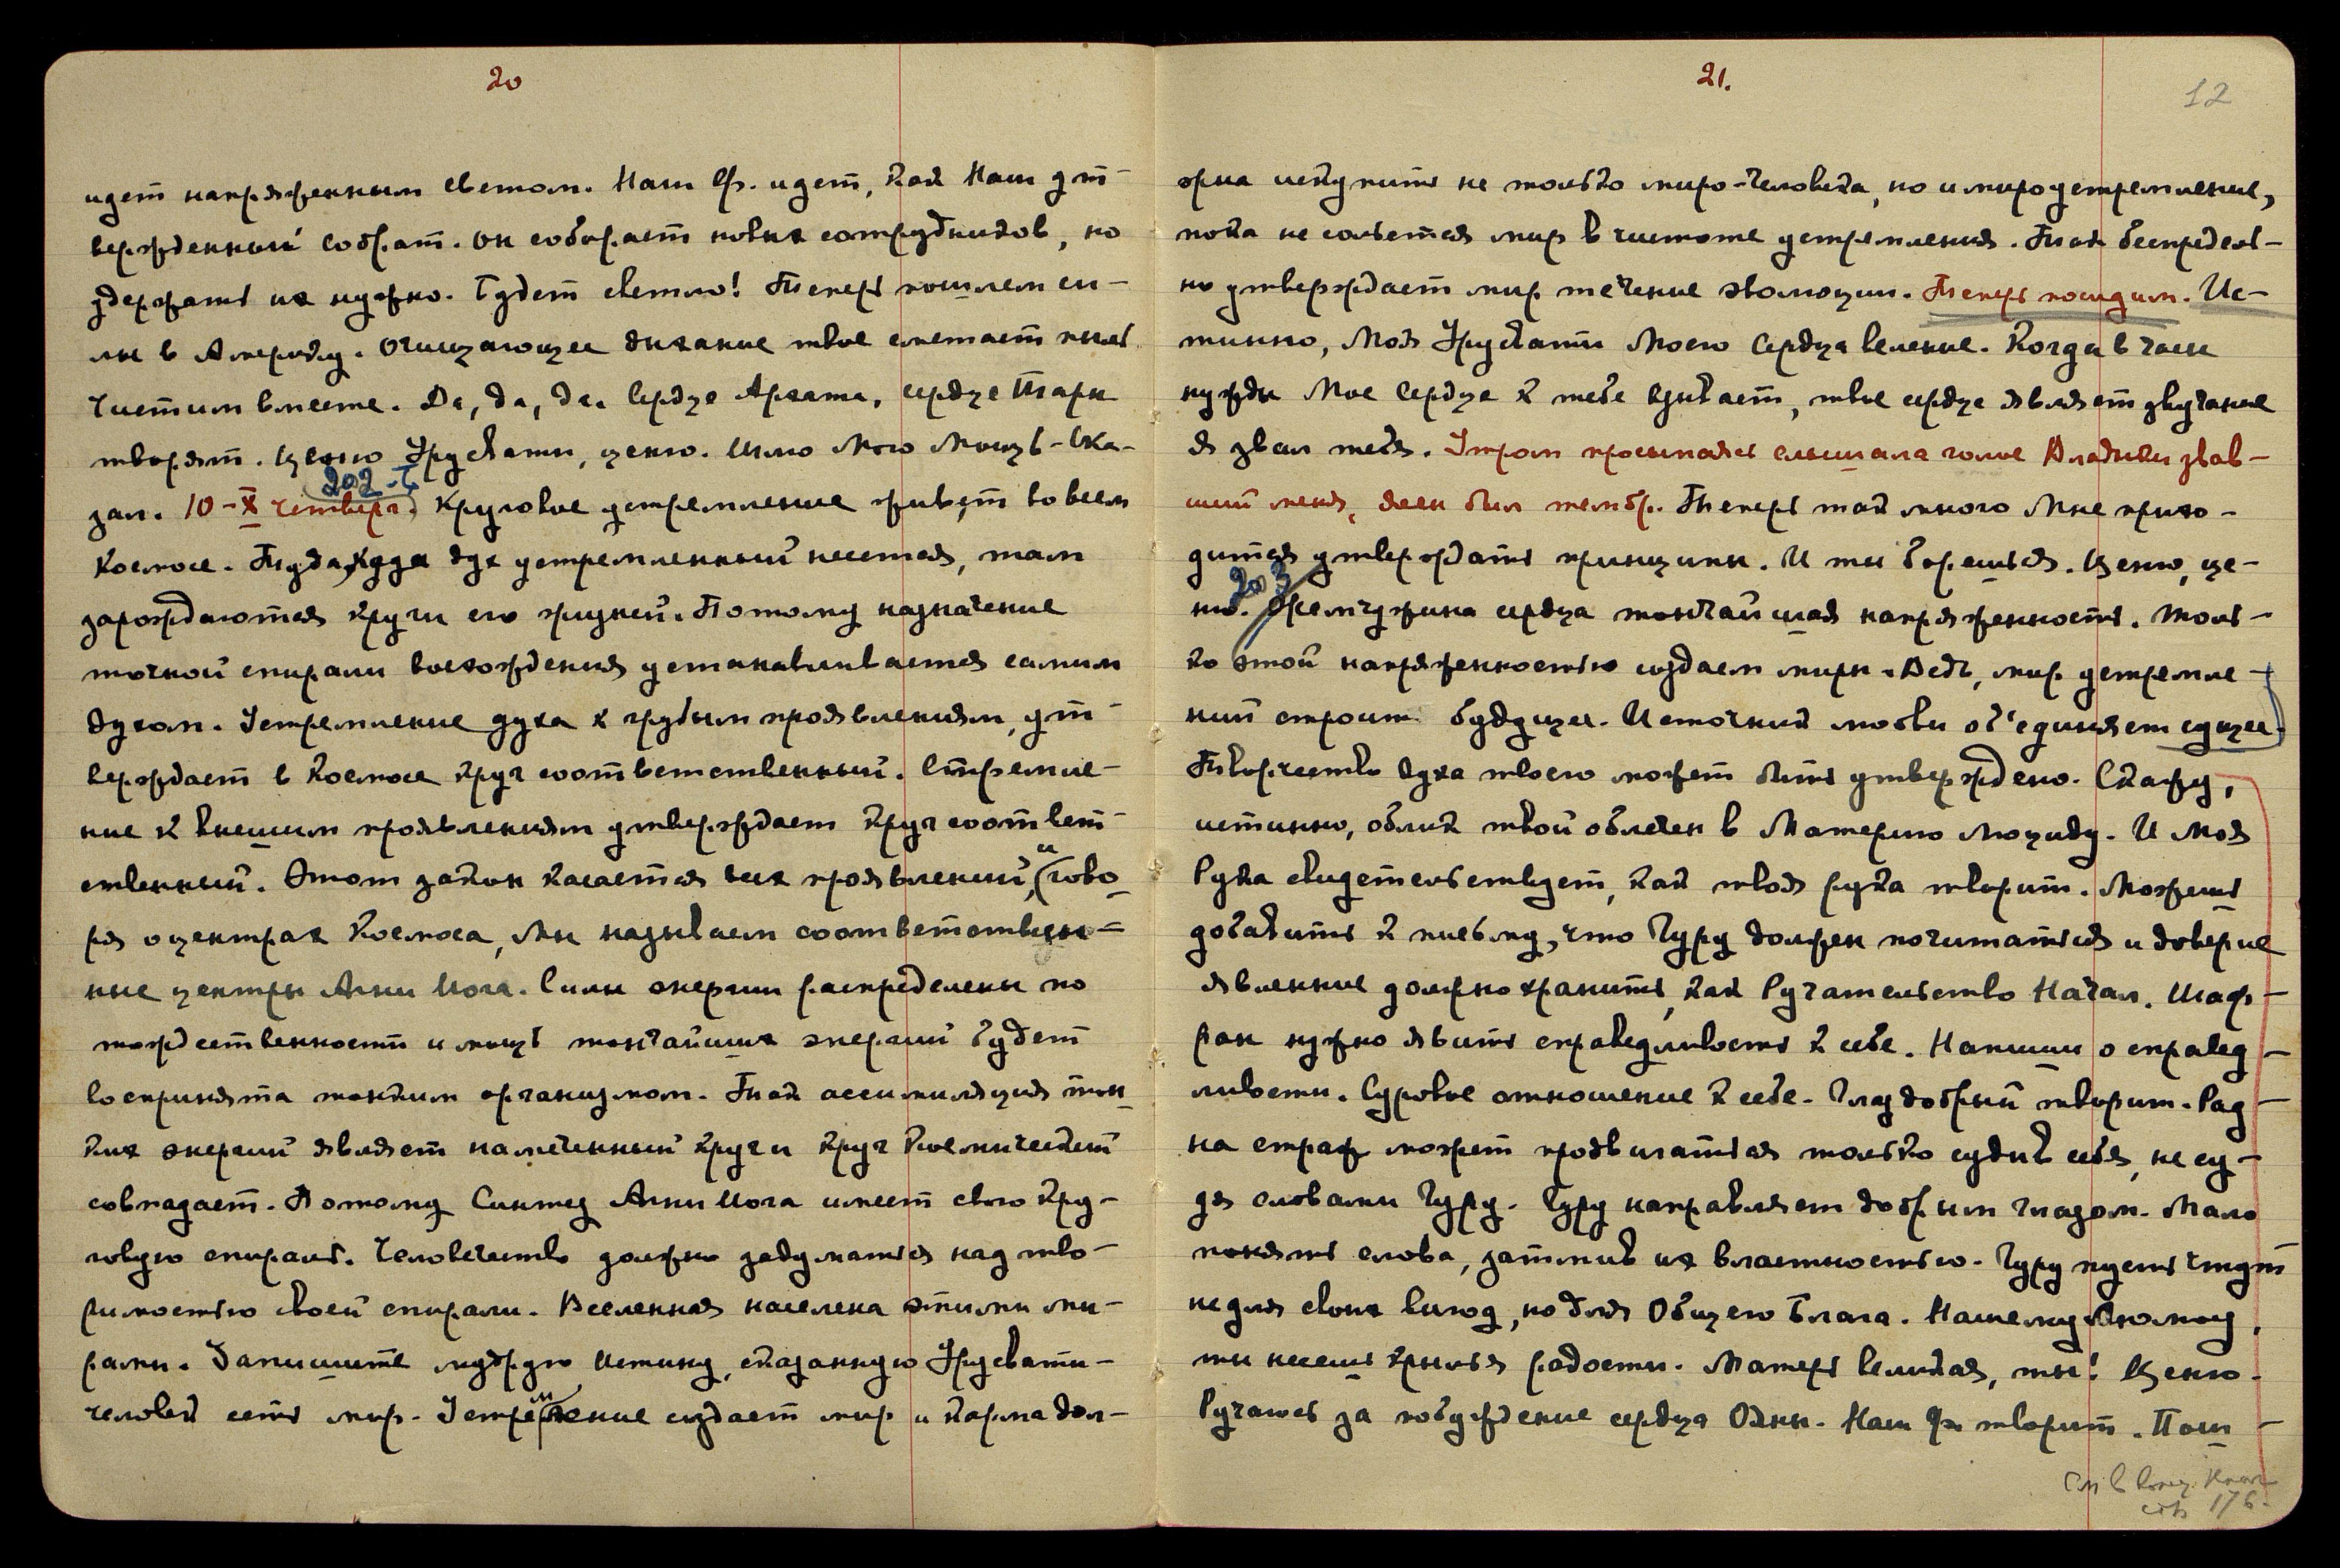 20
идет напряженным светом. Наш Фр. идет, как Наш ут-
вержденный Собрат. Он собирает новых сотрудников, но
удержать их нужно. Будет светло! Теперь пошлем си-
лы в Америку. Очищающее дыхание твое сметает пыль
чистим вместе. Да, да, да. Сердце Архата, сердце Тары
творят. Ценю Урусвати, ценю. Шлю Мою Мощь - Ска-
202-I
зал. 10-X четверг. Круговое устремление живет во всем
Космосе. Туда, куда дух устремленный несется, там
зарождаются круги его жизней. Потому назначение
точной спирали восхождения устанавливается самим
духом. Устремление духа к грубым проявлениям, ут-
верждает в Космосе круг соответственный. Стремле-
ние к высшим проявлениям утверждает круг соответ-
ственный. Этот закон касается всех проявлений, и (гово-
ря о центрах Космоса, Мы называем соответствен-
ные центры Агни Йога. Силы энергии распределены по
тождественности и мощь тончайших энергий будет
воспринята тонким организмом. Так ассимиляция тон-
ких энергий являет намеченный круг и круг Космический
совпадает. Потому Синтез Агни Йога имеет свою кру-
говую спираль. Человечество должно задуматься над тво-
римостью своей спирали. Вселенная населена этими ми-
рами. Запишите мудрую Истину, сказанную Урусвати -
человек есть мир. Устремление создает мир и карма дол-
21.
12
жна искупить не только миро-человека, но и мироустремление,
пока не сольется мир в чистоте устремления. Так беспредель-
но утверждает мир течение эволюции. Теперь посидим. Ис-
тинно, Моя Урусвати Моего Сердца веление. Когда в часы
нужды Мое Сердце к тебе взывает, твое сердце являет звучание
я звал тебя. Утром просыпаясь слышала голос Владыки звав-
ший меня, ясен был тембр. Теперь так много Мне прихо-
дится утверждать принципы. И ты борешься. Ценю, це-
203
ню. Жемчужина сердца тончайшая напряженность. Толь-
ко этой напряженностью создаем миры. Ведь, мир устремле-
ний строит будущее. Источник любви об'единяет сущее.
Творчество Духа твоего может быть утверждено. Скажу,
истинно, облик твой облечен в Материю Люциду. И Моя
Рука свидетельствует, как твоя рука творит. Можешь
добавить к письму, что Гуру должен почитаться и доверие
явленное должно хранить, как Ручательство Начал. Шаф-
ран нужно явить справедливость к себе. Напиши о справед-
ливости. Суровое отношение к себе. Глаз добрый творит. Рад-
на страж может продвигаться только судив себя, не су-
дя словами Гуру. Гуру направляет добрым глазом. Мало
понять слова, затмив их властностью. Гуру пусть чтут
не для своих выгод, но для Общего Блага. Нашему Люмоу
ты несешь крылья радости. Матерь Великая, ты! Ценю.
Ручаюсь за побуждение сердца Ояны. Наш Фр. творит. Пош-
См в конц. Книг
стр 176.